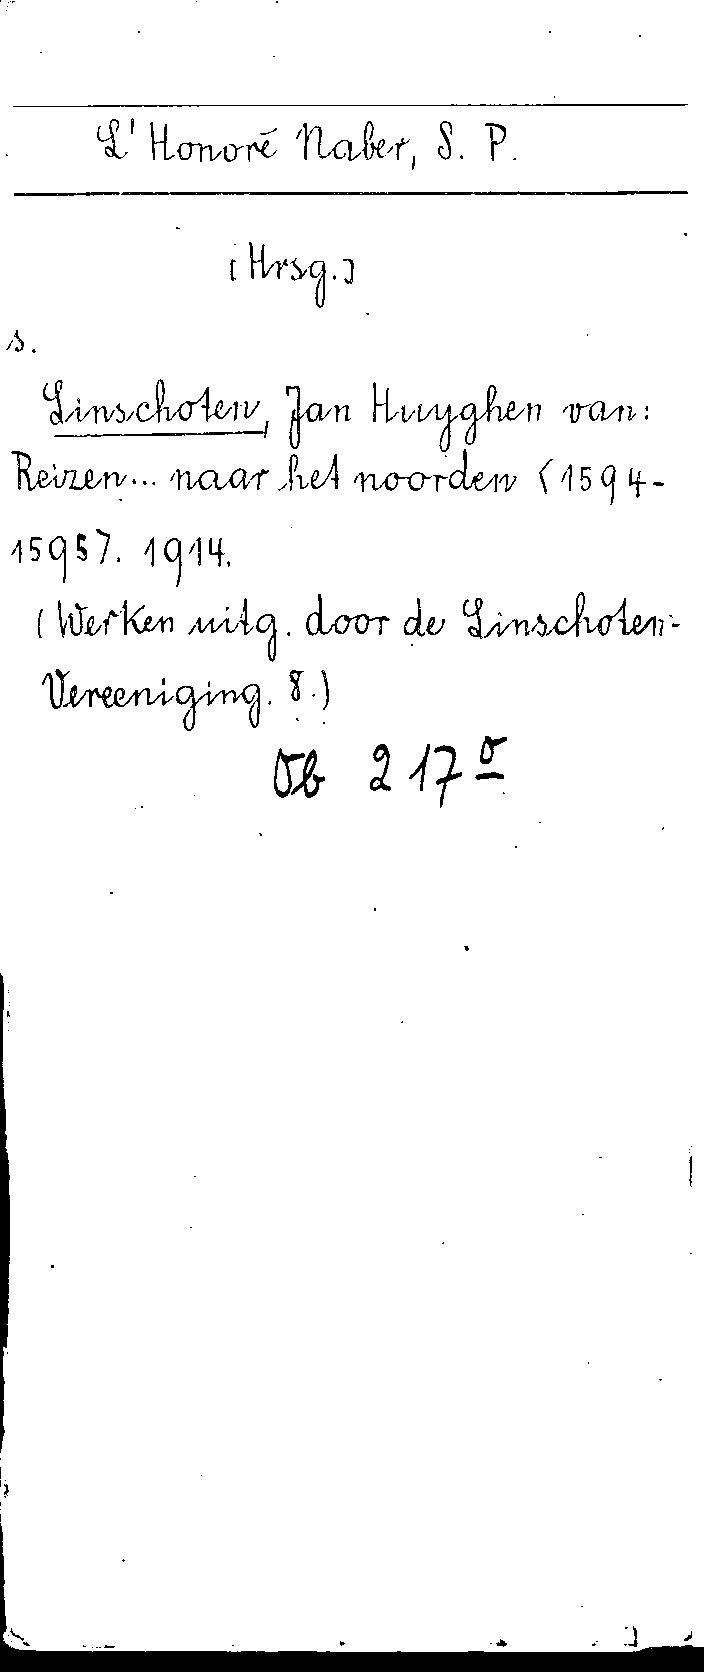 L'Honoré Naber, S. P.
[Hrsg.]
s.
Linschoten, Jan Huyghen van:
Reizen... naar het noorden <1594-
1595>. 1914.
(Werken uitg. door de Linschoten-
Vereeniging. 8.)
Ob 217 o